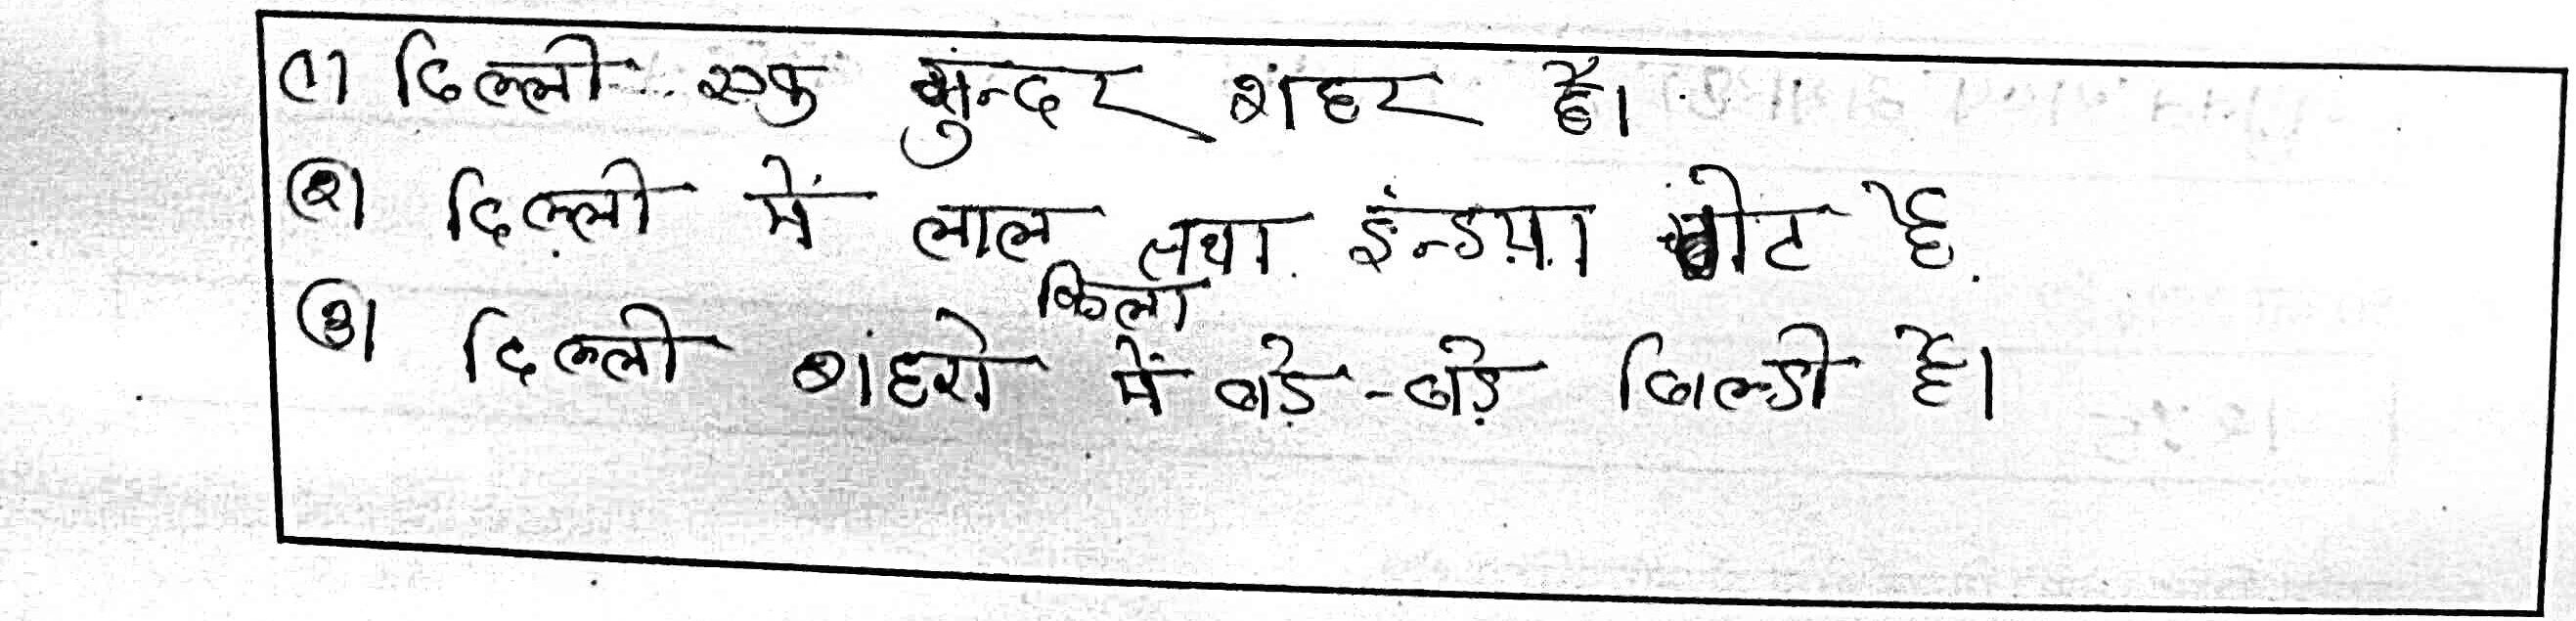 (1) दिल्ली एक सुन्दर शंहर है।
(2) दिल्ली में लाल किला तथा इंन्डया गेट है.
(3) दिल्ली शंहरो में बड़े-बड़े बिल्डी है।